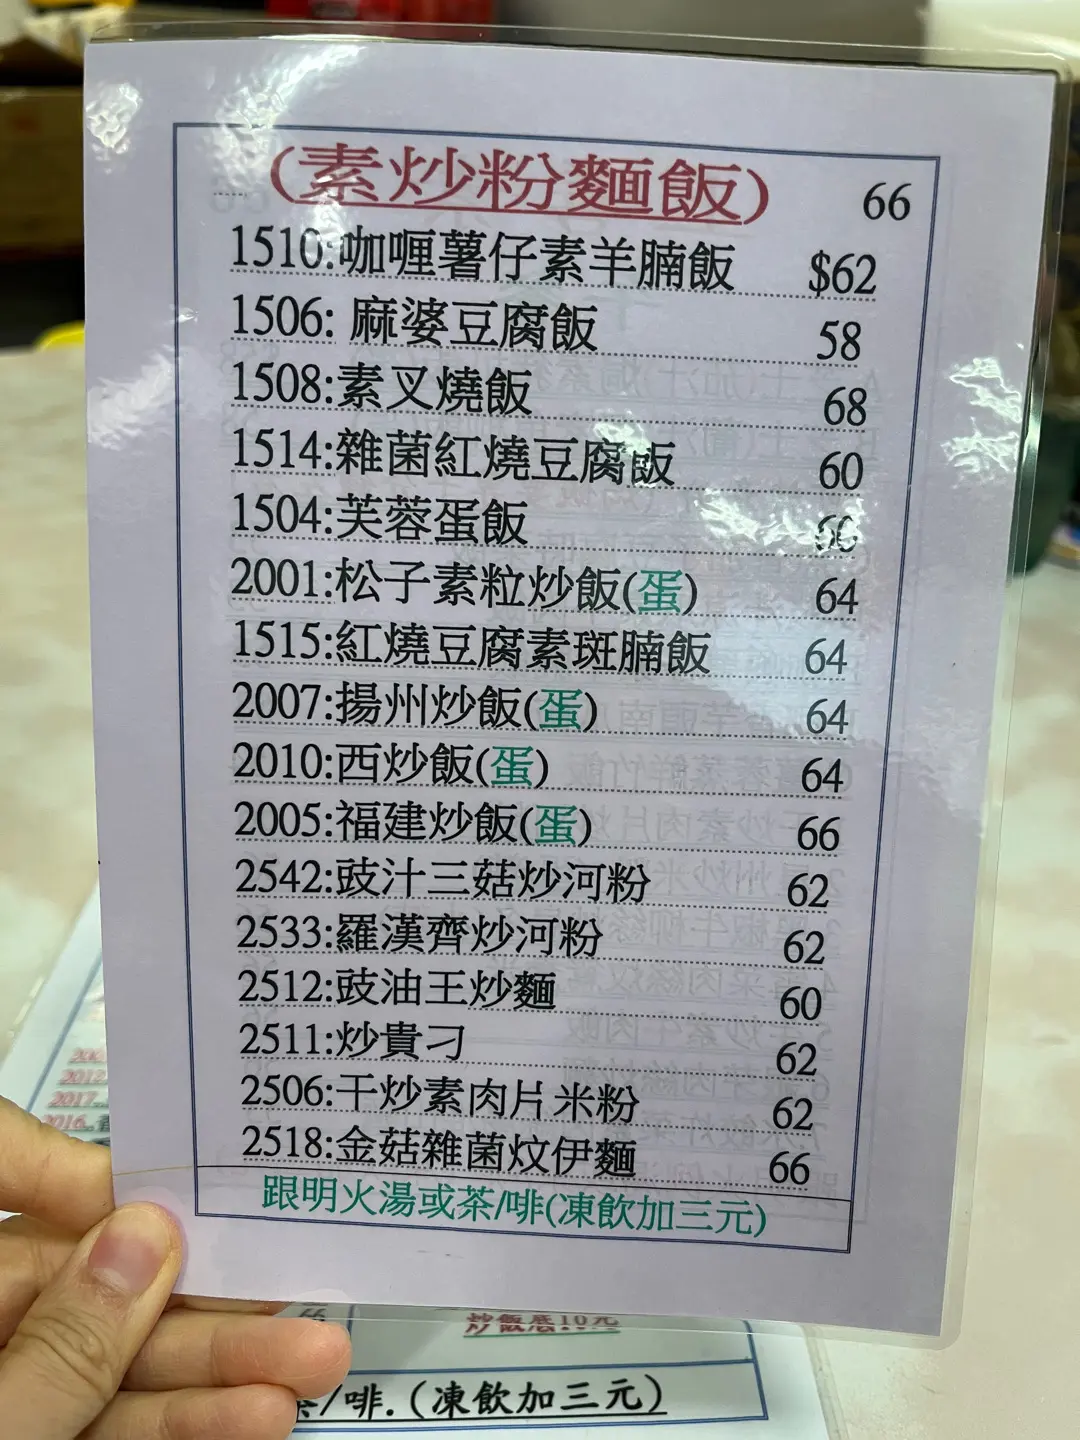 (素炒粉麵飯) 66
1510:咖喱薯仔素羊腩飯 $62
1506: 麻婆豆腐飯 58
1508:素叉燒飯 68
1514:雜菌紅燒豆腐飯 60
1504:芙蓉蛋飯
2001:松子素粒炒飯(蛋) 64
1515:紅燒豆腐素斑腩飯 64
2007:揚州炒飯(蛋) 64
2010:西炒飯(蛋) 64
2005:福建炒飯(蛋) 66
2542:豉汁三菇炒河粉 62
2533:羅漢齊炒河粉 62
2512:豉油王炒麵 60
2511:炒貴刁 62
2506:干炒素肉片米粉 62
2518:金菇雜菌炆伊麵 66
跟明火湯或茶/啡(凍飲加三元)
炒飯底10元
/啡.(凍飲加三元)